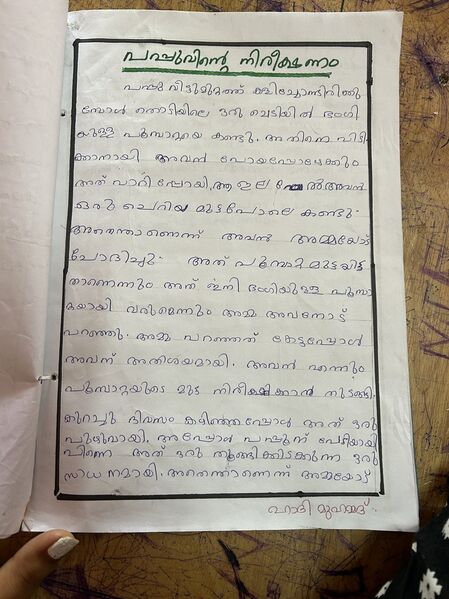 പപ്പുവിന്റെ നിരീക്ഷണം
പപ്പു വീട്ടുമുറ്റത്ത് കളിച്ചോണ്ടിരിക്കു
മ്പോൾ തൊടിയിലെ ഒരു ചെടിയിൽ ഭംഗി
യുള്ള പൂമ്പാറ്റയെ കണ്ടു. അതിനെ പിടി
ക്കാനായി അവൻ പോയപ്പോഴേക്കും
അത് പാറി പ്പോയി. ആ ഇല യിൽ അവൻ
ഒരു ചെറിയ മുട്ടപോലെ കണ്ടു.
അതെന്താണെന്ന് അവൻ അമ്മയോട്
ചോദിച്ചു. അത് പൂമ്പാറ്റ മുട്ടയിട്ട
താണെന്നും അത് ഇനി ഭംഗിയുള്ള പൂമ്പാ
റ്റയായി വരുമെന്നും അമ്മ അവനോട്
പറഞ്ഞു. അമ്മ പറഞ്ഞത് കേട്ടപ്പോൾ
അവന് അതിശയമായി. അവൻ എന്നും
പൂമ്പാറ്റയുടെ മുട്ട നിരീക്ഷിക്കാൻ തുടങ്ങി.
കുറച്ചു ദിവസം കഴിഞ്ഞപ്പോൾ അത് ഒരു
പുഴുവായി. അപ്പോൾ പപ്പുന് പേടിയായി
പിന്നെ അത് ഒരു തൂങ്ങിക്കിടക്കുന്ന ഒരു
സാധനമായി. അതെന്താണെന്ന് അമ്മയോട്
ഹാദി മുഹമ്മദ്.